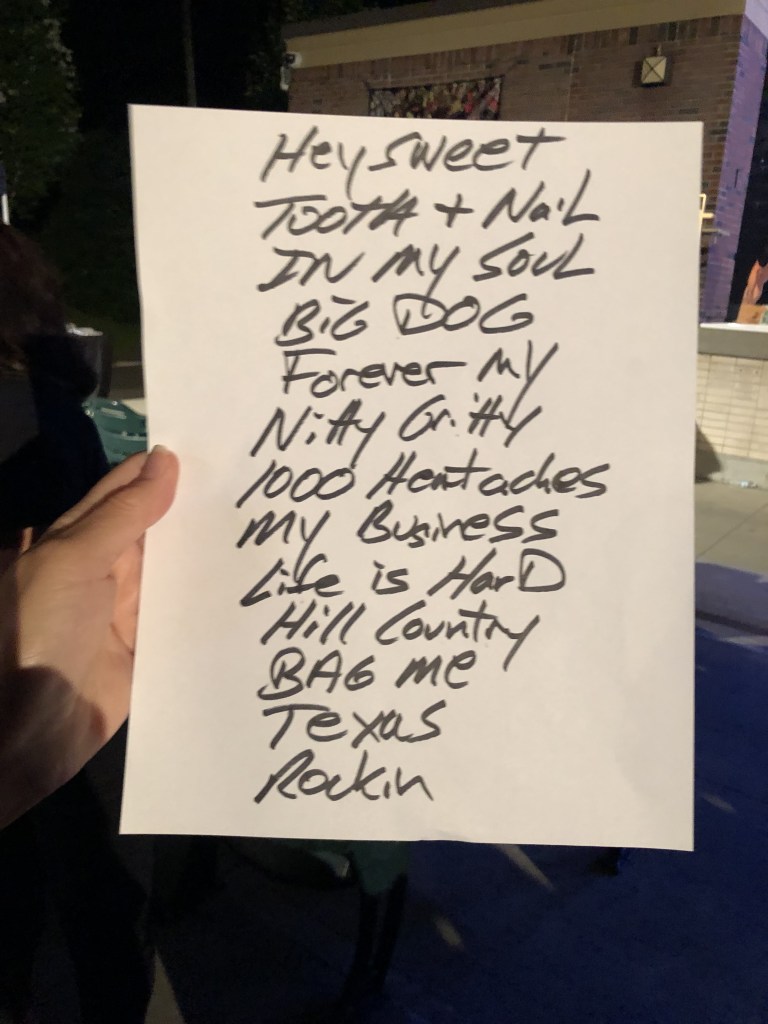 Hey Sweet
Tooth + Nail
IN My Soul
BiG DOG
Forever My
Nitty Gritty
1000 Heartaches
My Business
Life is HarD
Hill Country
BAG Me
Texas
Rockin